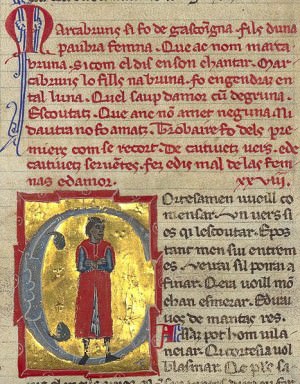 Marcabruns si fo de gascoingna. fils duna
paubra femna. Que ac nom marca
bruna. si com el dis en son chantar. Mar
cabruns lo fills na bruna. fo engendraz en
tal luna. Quel saup damor cū degruna.
Escoutatz. Que anc nō amet neguna. Ni
dautra no fo amatz. Trobaire fo dels pre
miers com se recort. De caitiuetz uers. e de
caitiuetz seruētes. fez e dis mal de las fem
nas e damor. xxviij.
Cortesamen uuoill co
mensar. un uers si
es qi lescoutar. E pos
tant men sui entrem
es. veirai sil poirai a
finar. Qera uuoill mō
chan esmerar. E dirai
uos de mantas res.
Assatz pot hom uila
neiar. Qi cortesia uol
blasmar.